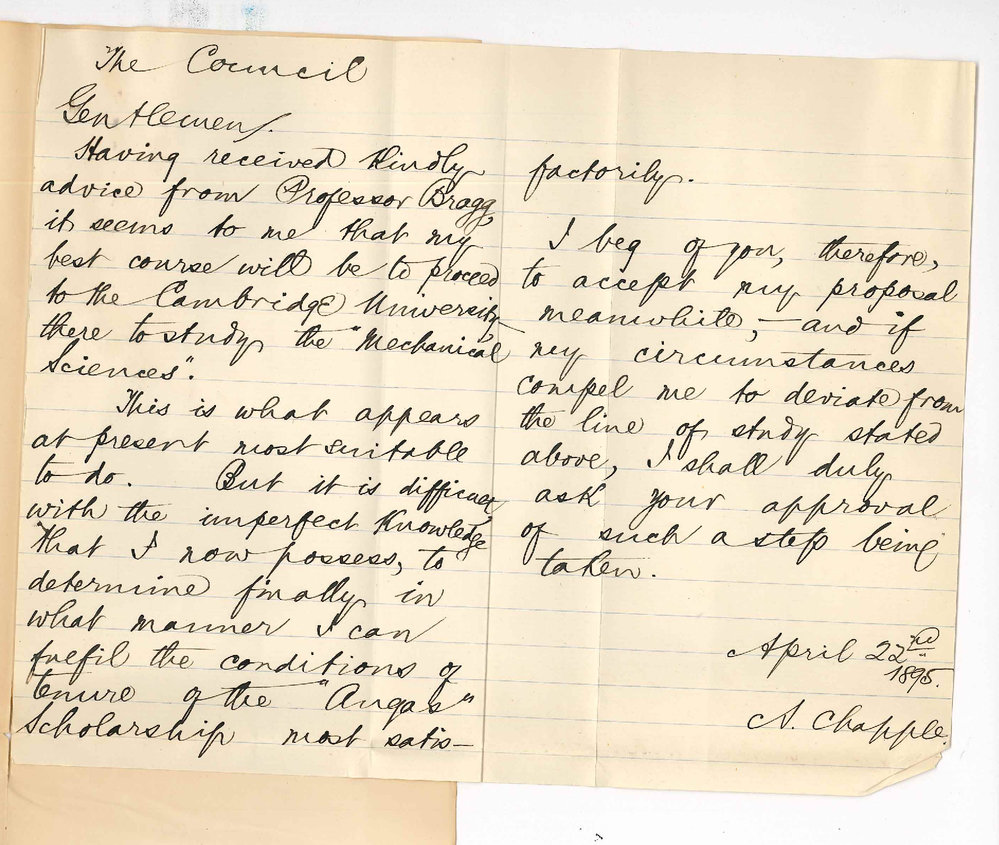 The Council
Gentlemen,.
Having received kindly
advice from Professor Bragg,
it seems to me that my
best course will be to proceed
to the Cambridge University,
there to study the "Mechanical
Sciences".
This is what appears
at present most suitable
to do. But it is difficult,
with the imperfect knowledge
that I now possess, to
determine finally in
what manner I can
fulfil the conditions of
tenure of the "Angas"
Scholarship most satis-
factorily.
I beg of you, therefore,
to accept my proposal
meanwhile, - and if
my circumstances
compel me to deviate from
the line of study stated
above, I shall duly
ask your approval
of such a step being
taken.
April 22nd
1895.
A. Chapple.